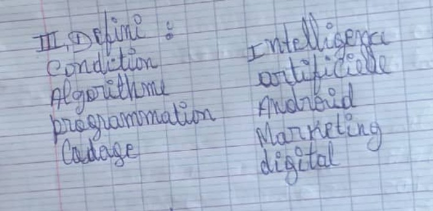 III, Défini :
Condition
Algorithme
programmation
Codage
Intelligence
artificielle
Android
Marketing
digital